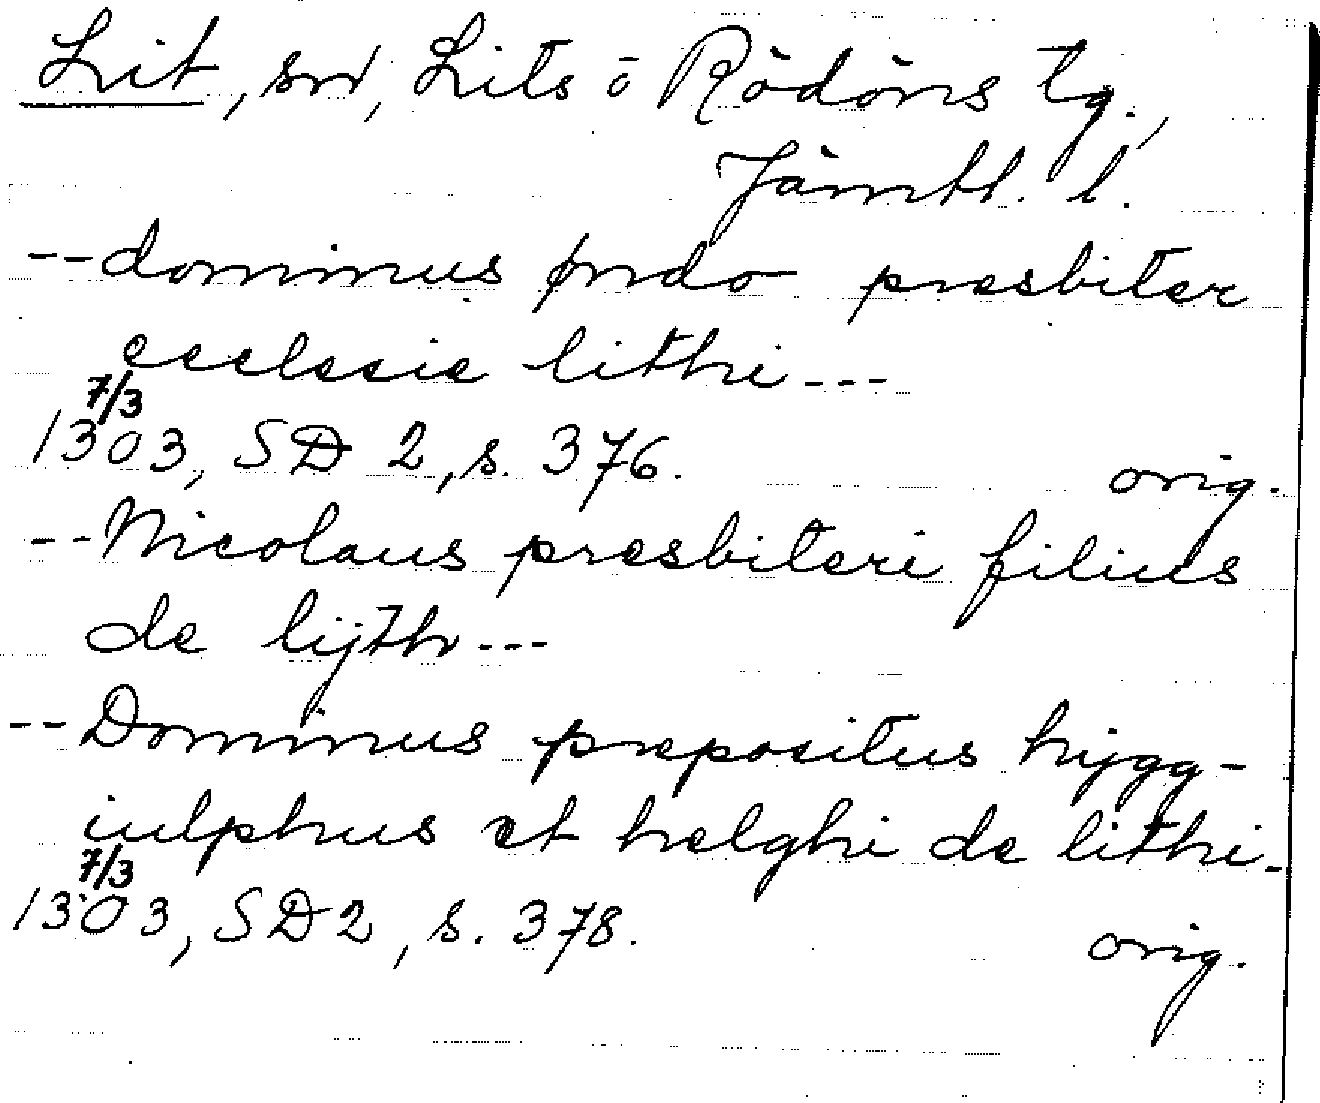 Lit, sn, Lits o Rödöns tg.,
Jämtl. l.
--dominus prndo presbiter
ecclesie lithi---
7/3
1303, SD 2, s. 376. orig.
--Nicolaus presbiteri filius
de lijth---
--Dominus prepositus hijgg-
iulphus et helghi de lithi-
7/3
1303, SD 2, s. 378. orig.